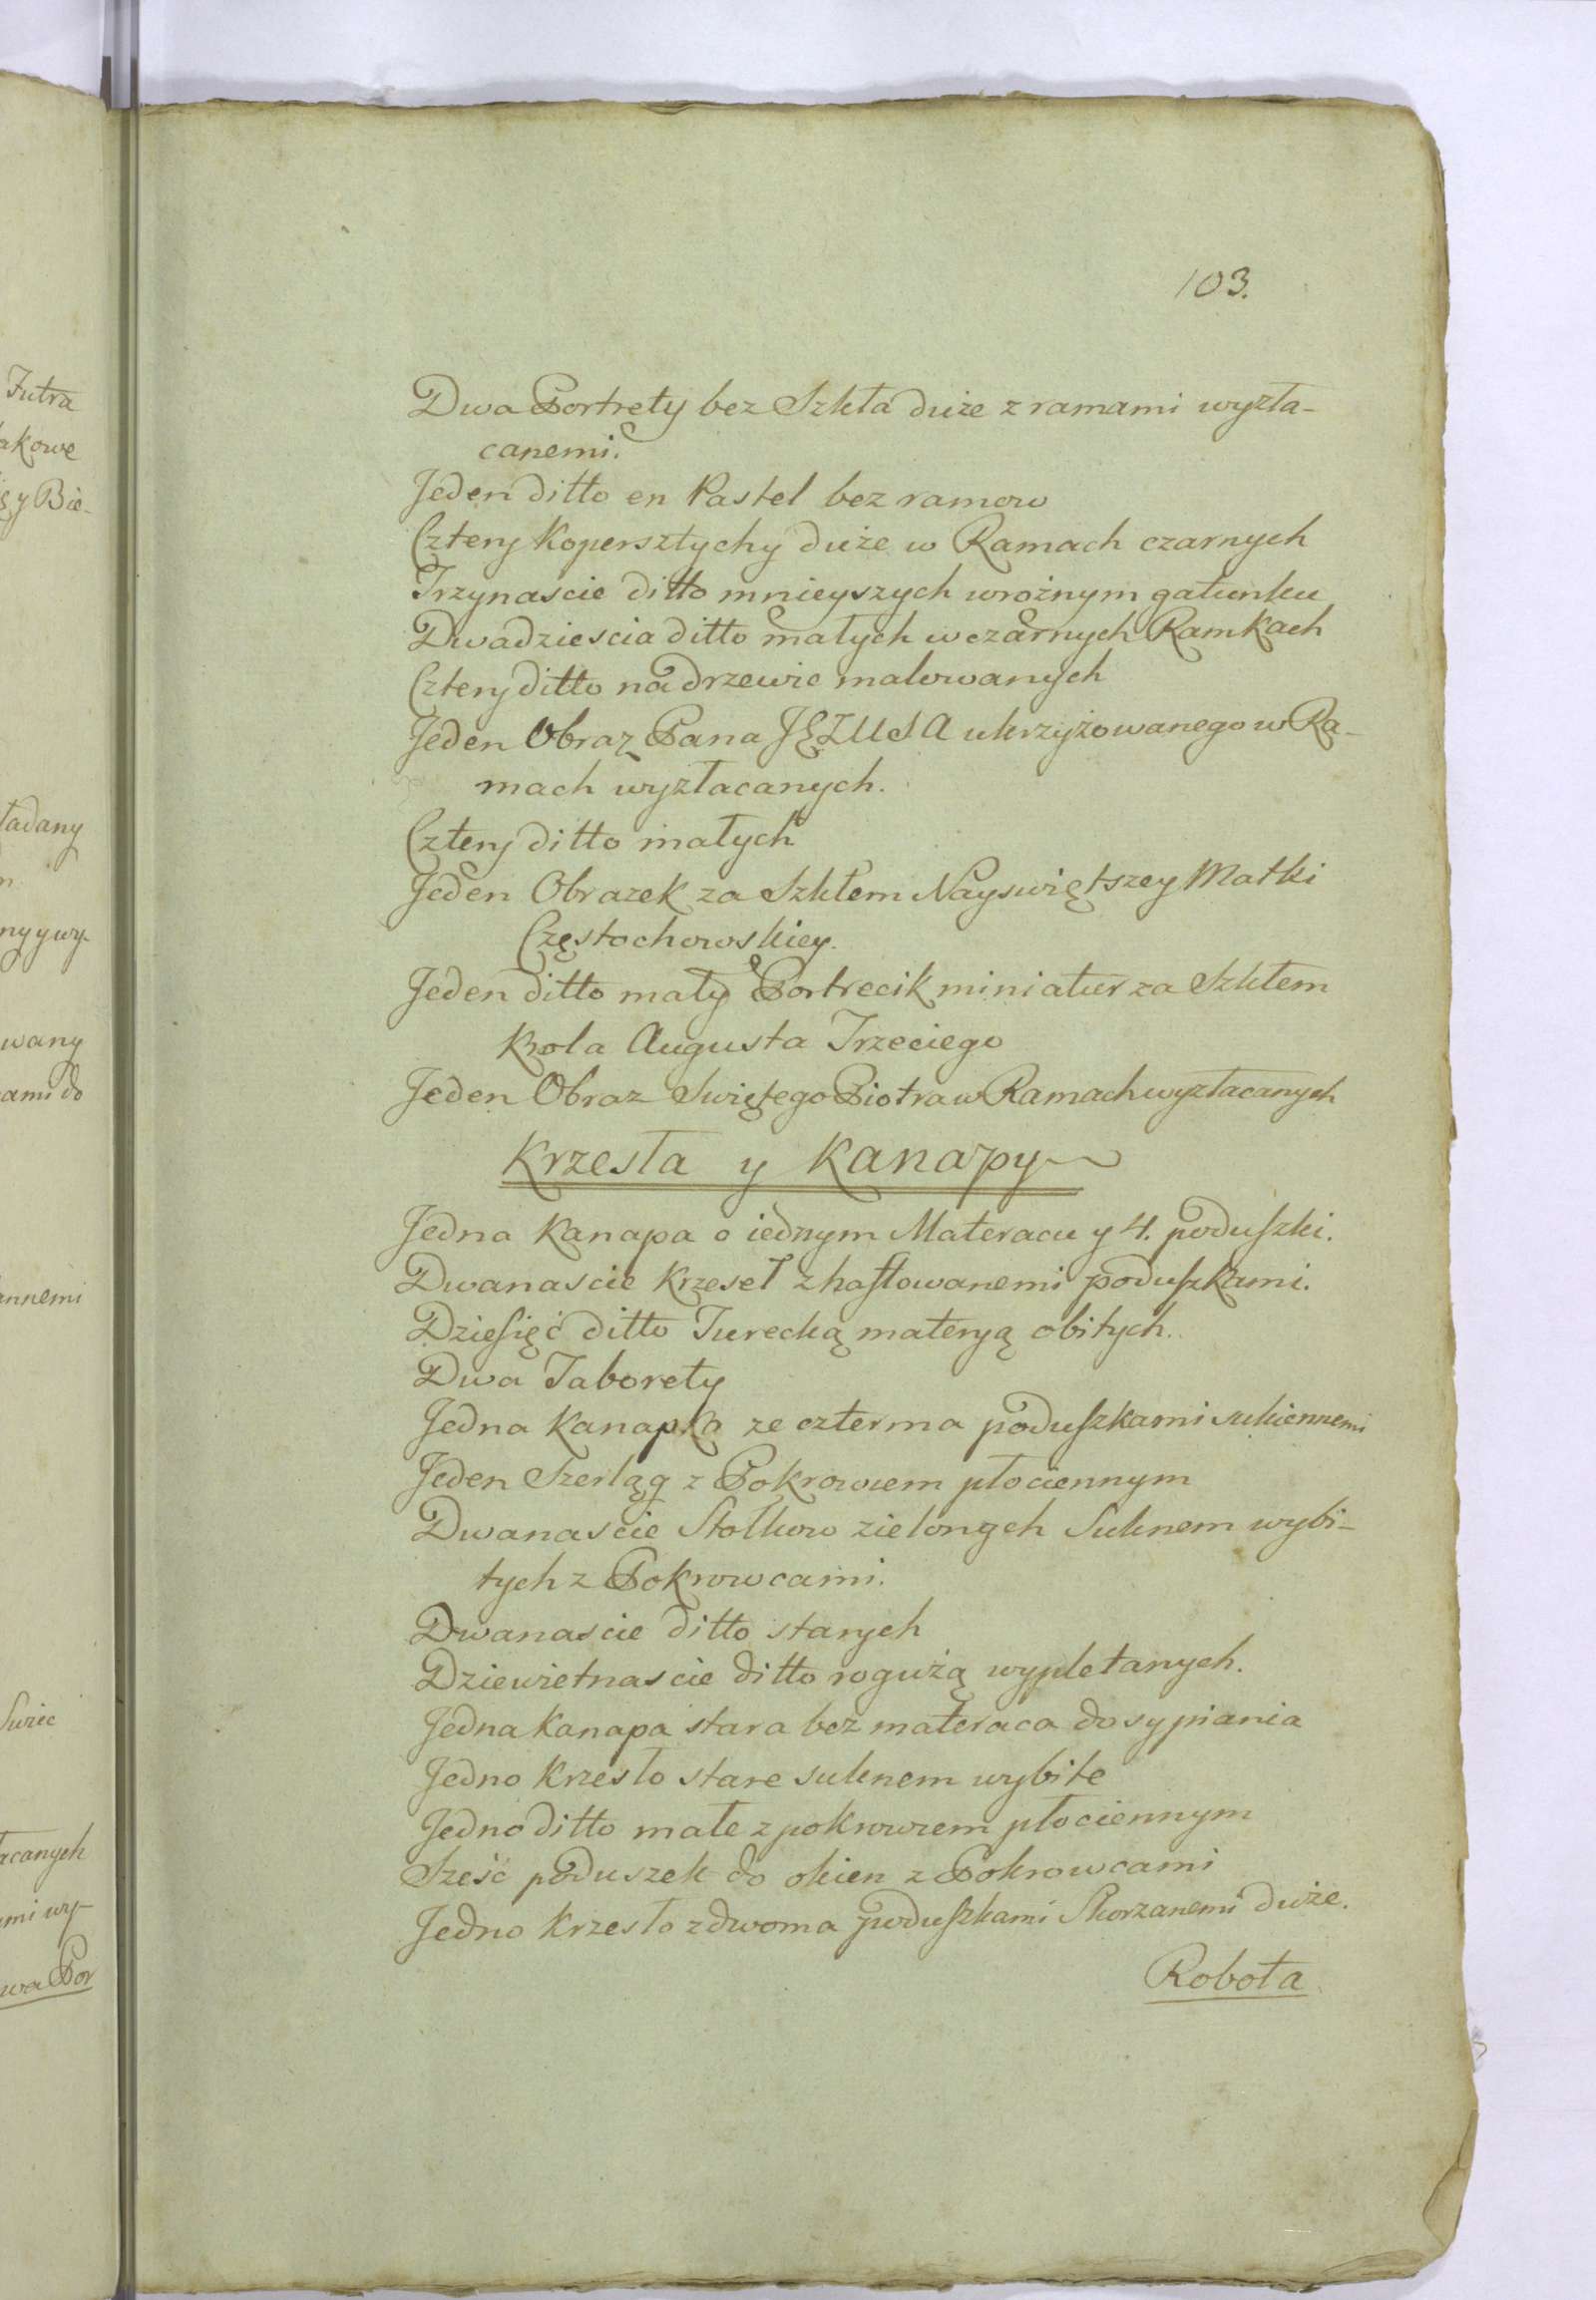 Futra
akowe
ęy Bie-
ładany
n
ny y wy-
wany
ami do
annemi
Swiec
acanych
ami wy-
wa Por
103.
Dwa Portrety bez Szkła duże z ramami wyzła-
canemi.
Jeden ditto en Pastel bez ramow
Cztery Kopersztychy duże w Ramach czarnych
Trzynascie ditto mnieyszych w rożnym gatunku
Dwadziescia ditto małych w czarnych Ramkach
Cztery ditto na drzewie malowanych
Jeden Obraz Pana JEZUSA ukrzyżowanego w Ra-
mach wyzłacanych.
Cztery ditto małych
Jeden Obrazek za Szkłem Nayswiętszey Matki
Częstochowskiey.
Jeden ditto mały Portrecik miniatur za Szkłem
Krola Augusta Trzeciego
Jeden Obraz Swiętego Piotra w Ramach wyzłacanych
Krzesła y Kanapy
Jedna Kanapa o iednym Materacu y 4. poduszki.
Dwanascie Krzeseł z haftowanemi poduszkami.
Dziesięć ditto Turecką materyą obitych.
Dwa Taborety
Jedna Kanapka ze czterma poduszkami sukiennemi
Jeden Szezląg z Pokrowcem płociennym
Dwanascie Stołkow zielonych Suknem wybi-
tych z Pokrowcami.
Dwanascie ditto starych
Dziewietnascie ditto rogużą wypletanych.
Jedna Kanapa stara bez materaca do sypiania
Jedno Krzesło stare suknem wybite
Jedno ditto małe z pokrowcem płociennym
Sześć poduszek do okien z Pokrowcami
Jedno Krzesło z dwoma poduszkami Skorzanemi duże.
Robota